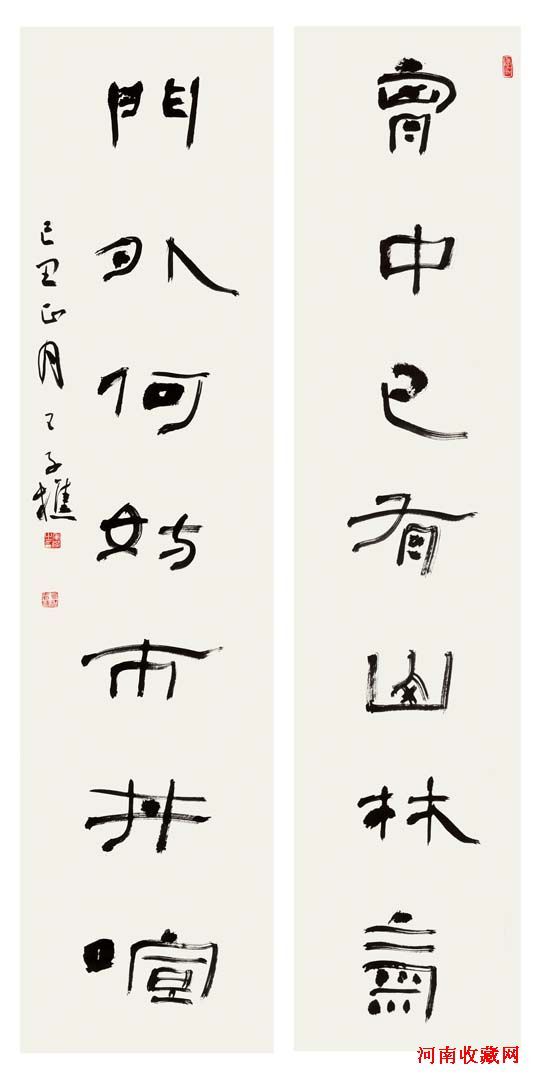 胷中已有山林氣
門外何妨市井喧
己丑正月 子樵
河南收藏网